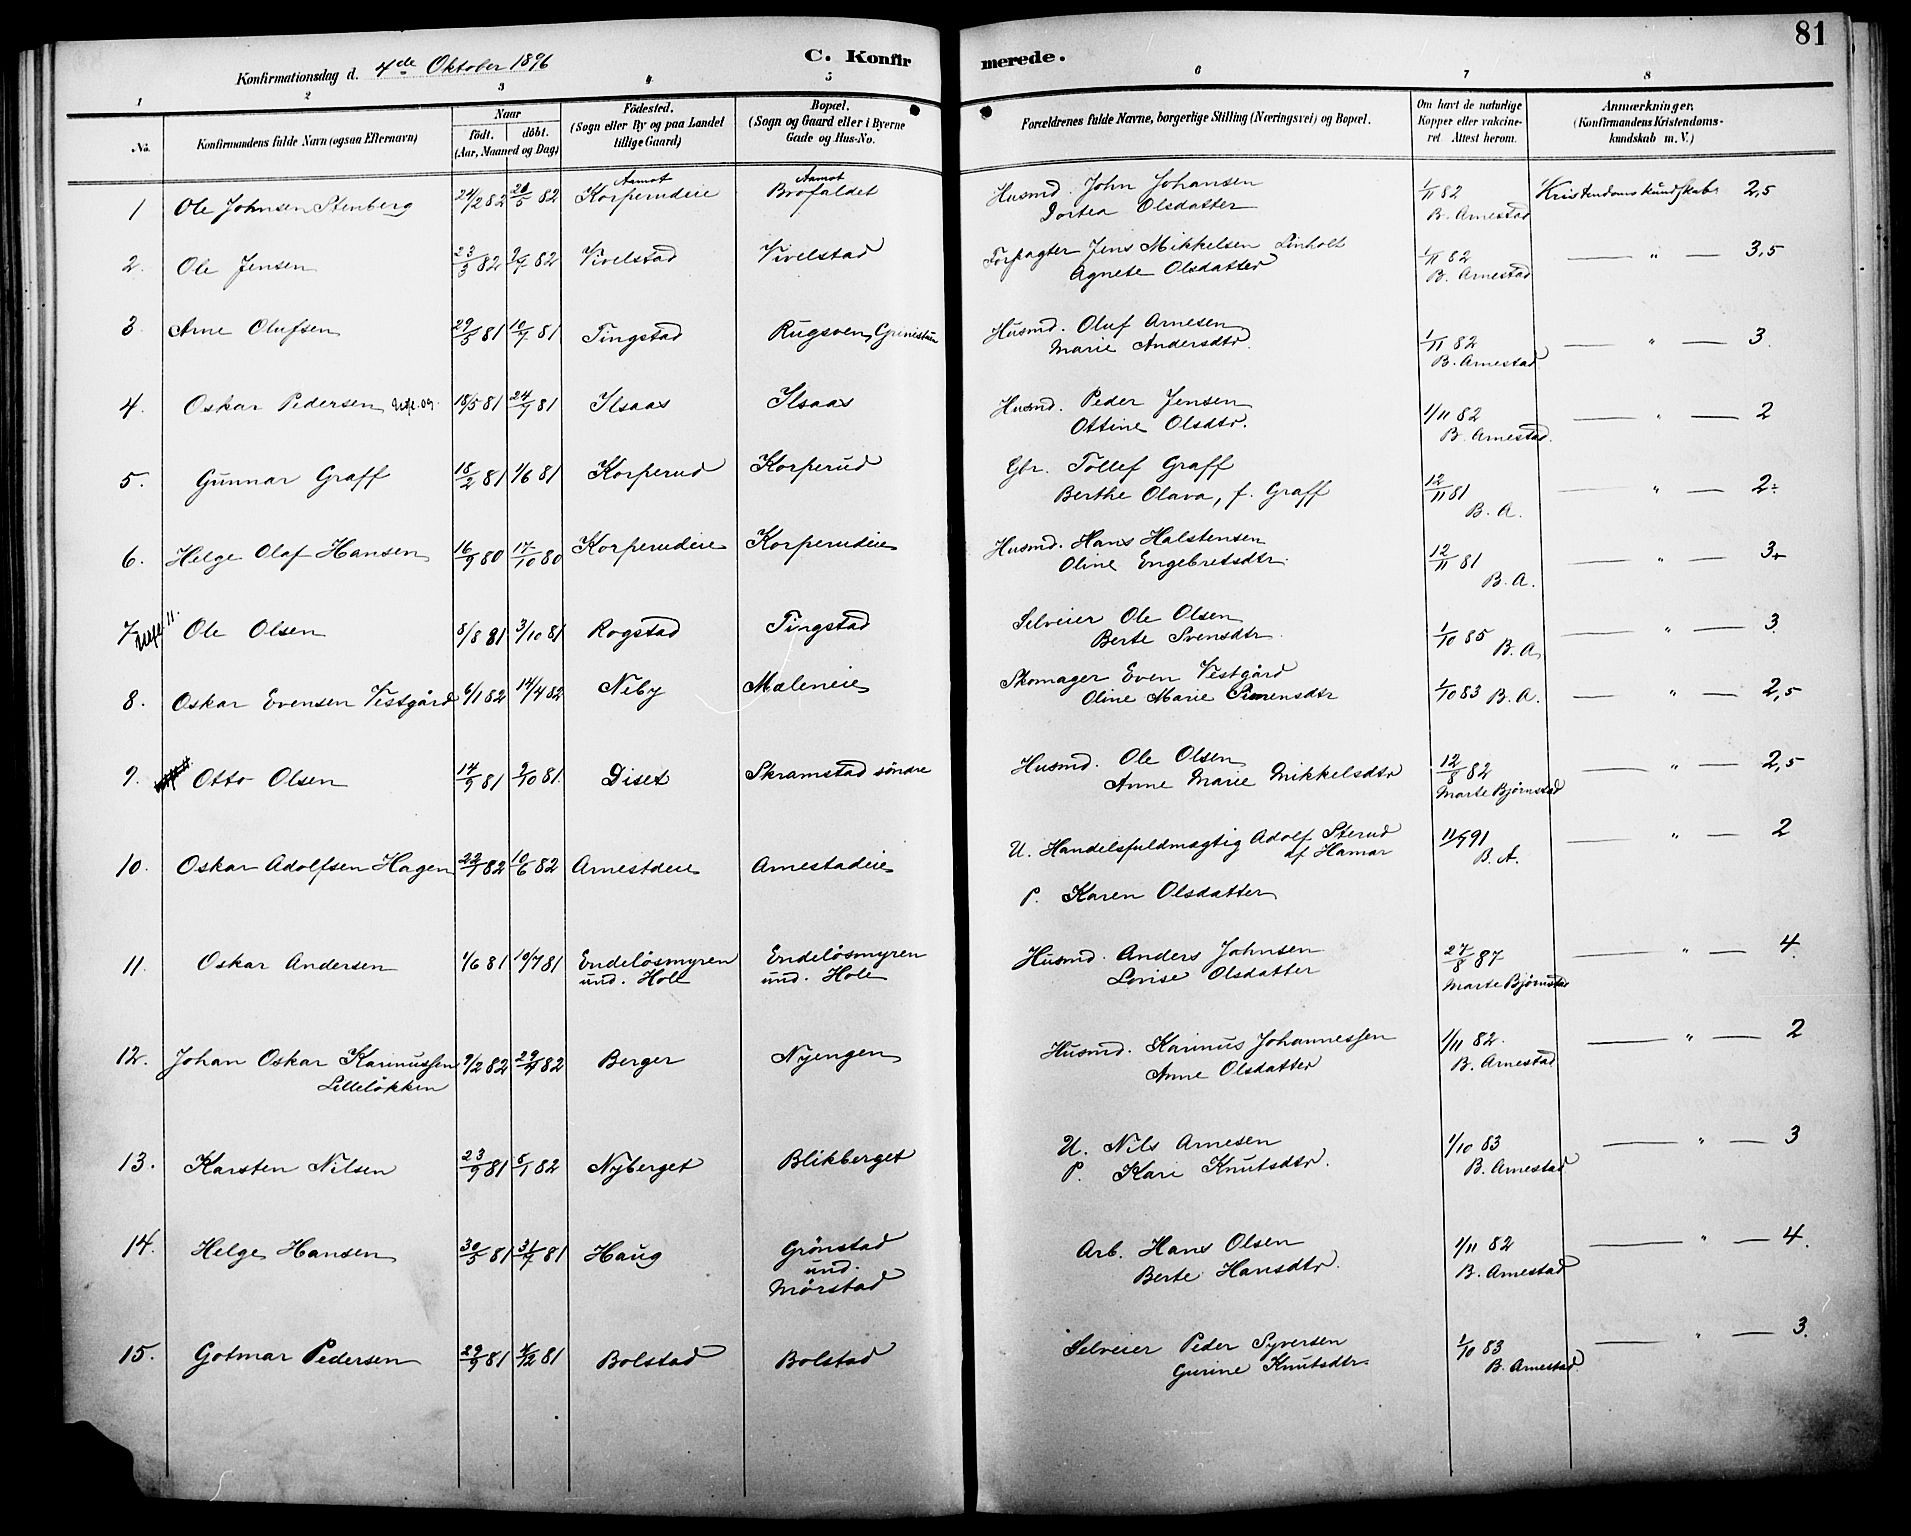 81
Konfirmationsdag d. 4de Oktober 1896
C. Konfir
merede.
1 2 3 4 5 6 7 8
No.
Konfirmandens fulde Navn (ogsaa Efternavn)
Naar
födt. döbt.
(Aar, Maaned og Dag)
Födested.
(Sogn eller By og paa Landet tillige Gaard)
Bopæl.
(Sogn og Gaard eller i Byerne Gade og Hus-No.
Forældrenes fulde Navne, borgerlige Stilling (Næringsvei) og Bopæl.
Om havt de naturlige Kopper eller vakcineret. Attest herom.
Anmærkninger.
(Konfirmandens Kristendomskundskab m. V.)
Aamot Aamot
1 Ole Johnsen Stenberg 24/2 82 26/5 82 Korperudeie Brofaldet Husmd. John Johansen 1/11 82 Kristendomskundskab 2,5
Dortea Olsdatter B. Arnestad
2. Ole Jensen 23/3 82 82 Vivelstad Vivelstad Forpagter Jens Mikkelsen Linholt 1/11 82 — " — 3,5
Agnete Olsdatter B. Arnestad
3. Arne Olufsen 29/5 81 10/7 81 Tingstad Rugsven Husmd. Oluf Arnesen 1/11 82 — " — 3.
Marie Andersdtr. B. Arnestad
4. Oskar Pedersen 18/5 81 24/7 81 Ilsaas Ilsaas Husmd. Peder Jensen 1/11 82 — " — 2
Ottine Olsdtr. B. Arnestad.
5. Gunnar Graff 18/2 81 1/6 81 Korperud Korperud Gbr. Tollef Graff 12/11 81 — " — 2÷
Berthe Olava, f. Graff B. A.
6. Helge Olaf Hansen 16/9 80 17/10 80 Korperudeie Korperudeie Husmd. Hans Halstensen 12/11 81 — " — 3÷
Oline Engebretsdtr. B. A.
7. Ole Olsen 8/8 81 3/10 81 Rogstad Tingstad Selveier Ole Olsen 1/10 85 B. A — " — 3
Berte Svensdtr.
8. Oskar Evensen Vestgård 6/1 82 14/4 82 Neby Mæleneie Skomager Even Vestgård 1/10 83 B. A. — " — 2,5
Oline Marie Simensdtr
9. Otto Olsen 14/9 81 2/10 81 Diset Skramstad söndre Husmd. Ole Olsen 12/8 82 — " — 2,5
Anne Marie Mikkelsdtr Marte Bjørnstad
10. Oskar Adolfsen Hagen 22/1 82 10/6 82 Arnestdeie Arnestadeie U. Handelsfuldmægtig Adolf Sterud 11/9 91 — " — 2
af Hamar B. A.
P. Karen Olsdatter
11. Oskar Andersen 1/6 81 10/7 81 Endelösmyren Endelösmyren Husmd. Anders Johnsen 27/8 87 — " — 4.
und. Hole und. Hole Lovise Olsdatter Marte Bjørnstad
12. Johan Oskar Karinussen 9/2 82 82 Berger Nyengen Husmd. Karinus Johannessen 1/11 82. — " — 2
Lilleløkken Anne Olsdatter B. Arnestad
13. Karsten Nilsen 23/9 81 8/1 82 Nyberget Blikberget U. Nils Arnesen 1/10 83 — " — 3
P. Kari Knutsdtr. B. Arnestad
14. Helge Hansen 30/5 81 31/7 81 Haug Grönstad Arb. Hans Olsen 1/11 82 — " — 4.
und. Berte Hansdtr. B. Arnestad
Mörstad
15. Gotmar Pedersen 29/9 81 4/12 81 Bolstad Bolstad Selveier Peder Syversen 1/10 83 — " — 3.
Gurine Knutsdtr. B. Arnestad.